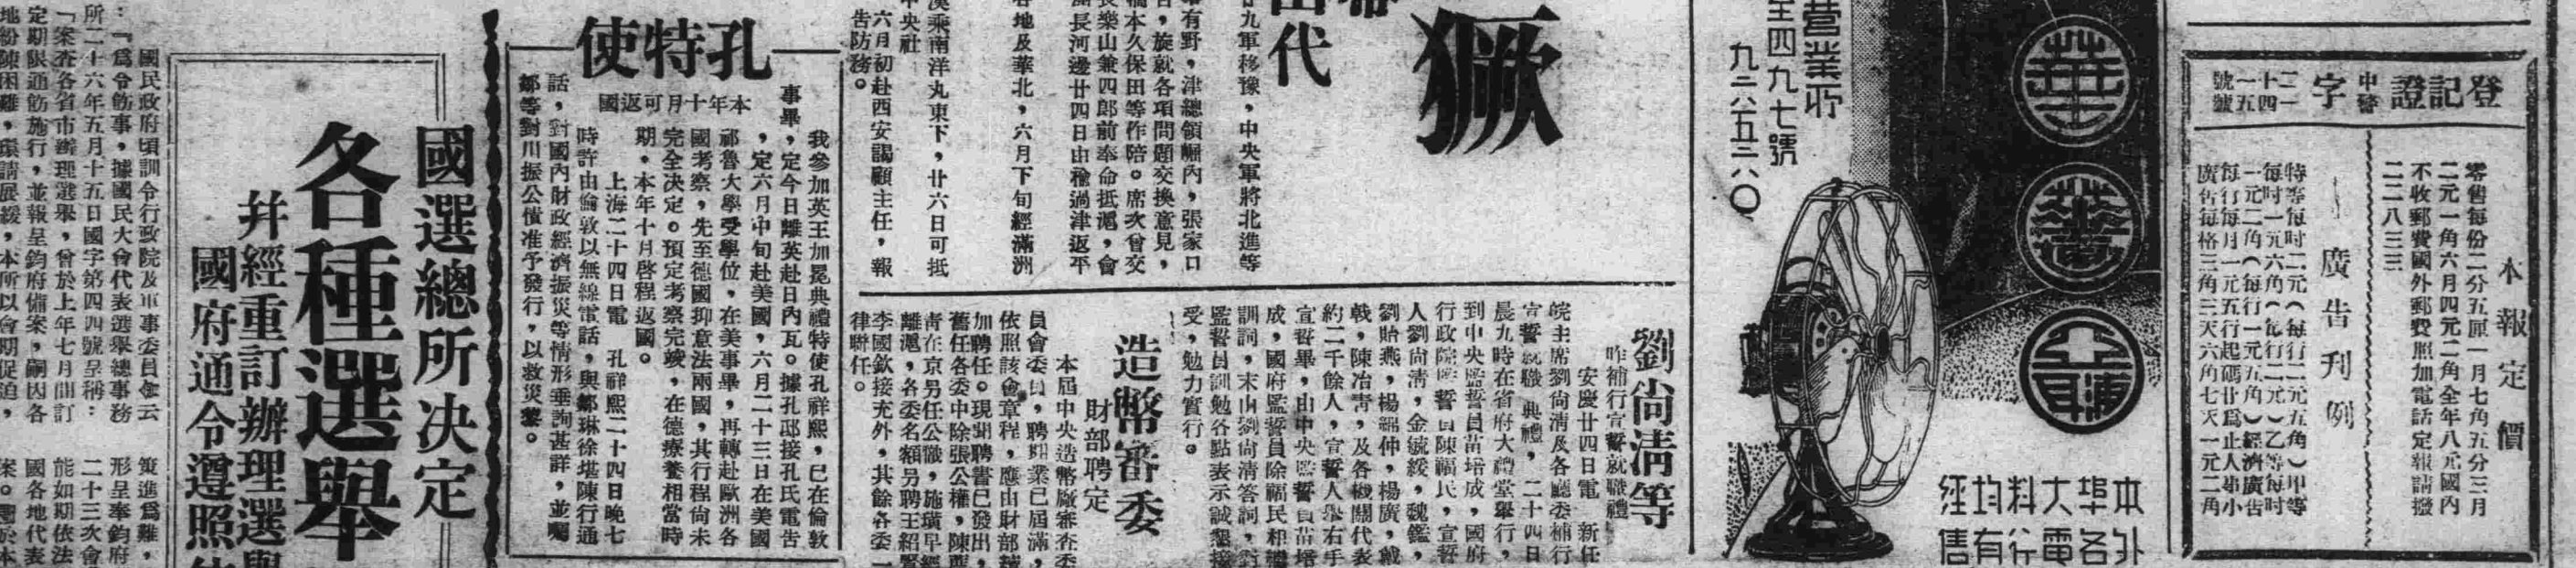 登記證
中警
字
二一
十四
一五
號號
本報定價
零售每份二分五厘一月七角五分三月
二元一角六月四元二角全年八元國內
不收郵費國外郵費照加電話定報請撥
二二八三三
廣告刊例
特等每吋二元(每行二元五角)甲等
每吋一元六角(每行二元)乙等每吋
一元二角(每行一元五角)經濟廣告
每行每月一元五行起碼廿為止人事小
廣告每格三角三天六角七天一元二角
營業所
至四九七號
九二六五二六〇
本埠大料均經
外各電行有售
獗
廿九軍移豫,中央軍將北進等
劉尚清等
昨補行宣誓就職禮
安慶廿四日電 新任
皖主席劉尚清及各廳委補行
宣誓就職 典禮,二十四日
晨九時在省府大禮堂舉行,
到中央監誓員苗培成,國府
行政院監誓員陳福民,宣誓
人劉尚清,金毓綬,魏鑑,
劉貽燕,楊綿仲,楊廣,戴
戟,陳冶青,及各機關代表
約二千餘人,宣誓人舉右手
宣誓畢,由中央監誓員苗培
成,國府監誓員陳福民相繼
訓詞,末由劉尚清答詞,對
監誓員訓勉各點表示誠懇接
受,勉力實行。
造幣審委
財部聘定
本屆中央造幣廠審查委
員會委員,聘期業已屆滿,
依照該會章程,應由財部續
加聘任。現聞聘書已發出,
舊任各委中除張公權,陳蔗
青在京另任公職,施璜早經
離滬,各委名額另聘王紹賢
李國欽接充外,其餘各委一
律聯任。
有野,津總領堀內,張家口
,旋就各項問題交換意見,
橋本久保田等作陪。席次曾交
長樂山兼四郎前奉命抵滬,會
長河邊廿四日由榆過津返平
各地及華北,六月下旬經滿洲
漢乘南洋丸東下,廿六日可抵
中央社
六月初赴西安謁顧主任,報
告防務。
孔特使
本年十月可返國
我參加英王加冕典禮特使孔祥熙,已在倫敦
事畢,定今日離英赴日內瓦。據孔邸接孔氏電告
,定六月中旬赴美國,六月二十三日在美國
祁魯大學受學位,在美事畢,再轉赴歐洲各
國考察,先至德國抑意法兩國,其行程尚未
完全決定。預定考察完竣,在德療養相當時
期,本年十月啓程返國。
上海二十四日電 孔祥熙二十四日晚七
時許由倫敦以無線電話,與鄒琳徐堪陳行通
話,對國內財政經濟振災等情形垂詢甚詳,並囑
鄒等對川振公債准予發行,以救災黎。
國選總所決定
各種選舉
并經重訂辦理選舉
國府通令遵照
國民政府頃訓令行政院及軍事委員會云
:「為令飭事,據國民大會代表選舉總事務
所二十六年五月十五日國字第四四號呈稱:
「案查各省市辦理選舉,曾於上年七月間訂
定期限通飭施行,並報呈鈞府備案,嗣因各
地紛陳困難,環請展緩,本所以會期促迫,
策進為難,
形呈奉鈞府
二十三次會
能如期依法
國各地代表